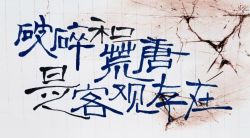 破碎和荒唐
是客观存在